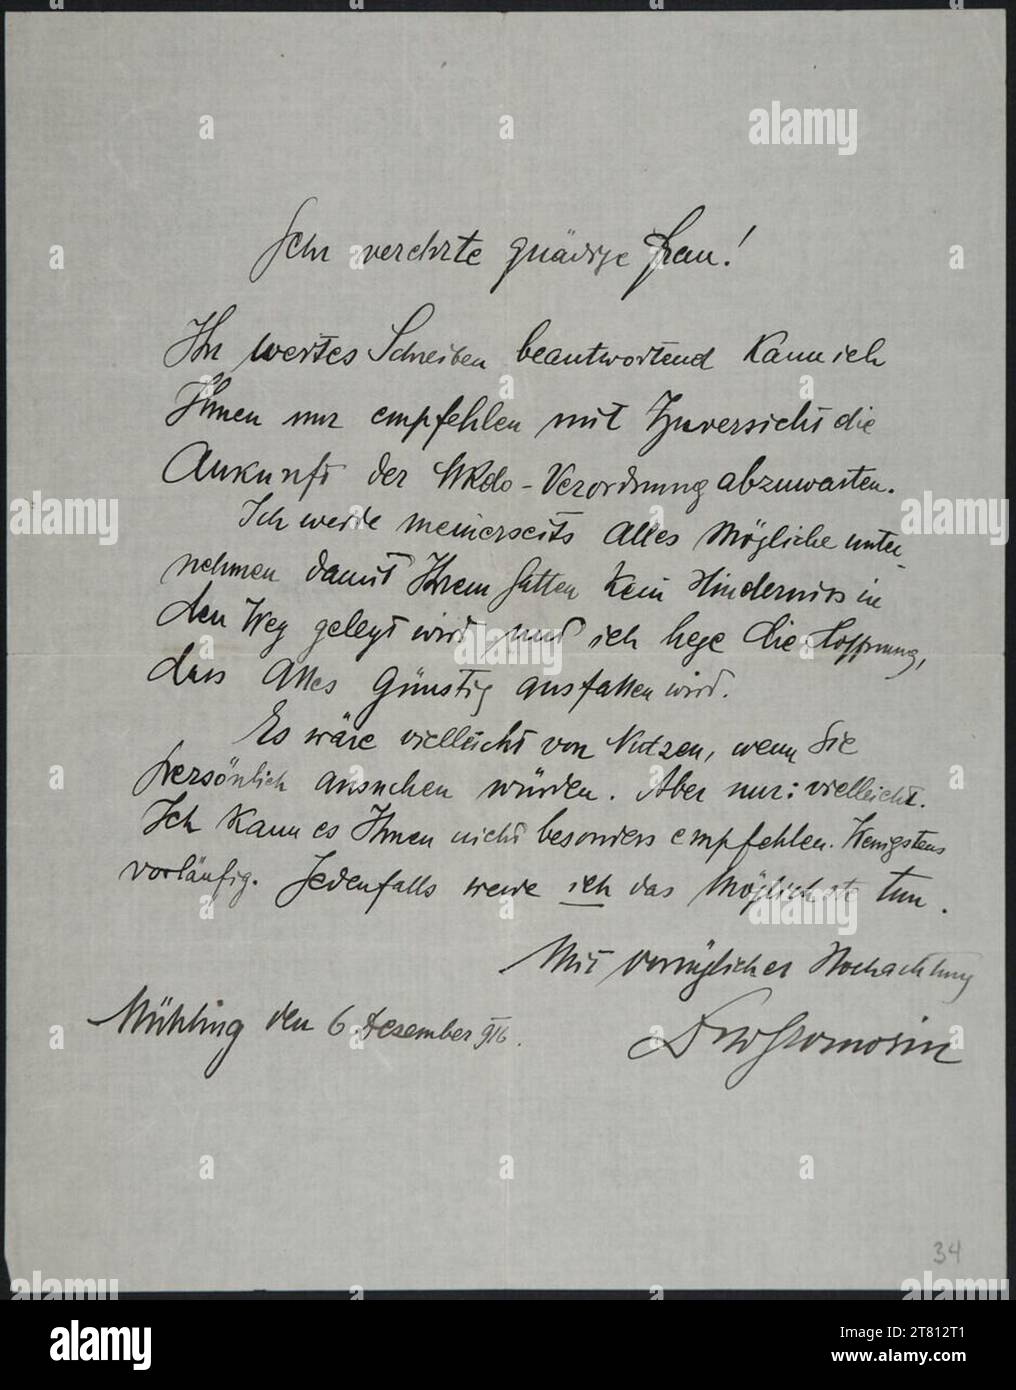 Sehr verehrte gnädige Frau!
Ihr wertes Schreiben beantwortend kann ich
Ihnen nur empfehlen mit Zuversicht die
Ankunft der Wkdo-Verordnung abzuwarten.
Ich werde meinerseits Alles Mögliche unter-
nehmen damit Ihrem Gatten kein Hinderniss in
den Weg gelegt wird und ich hege die Hoffnung,
dass Alles günstig ausfallen wird.
Es wäre vielleicht von Nutzen, wenn Sie
persönlich ansuchen würden. Aber nur: vielleicht.
Ich kann es Ihnen nicht besonders empfehlen. Wenigstens
vorläufig. Jedenfalls werde ich das Möglichste tun.
Mit vorzüglicher Hochachtung
Mühling den 6 Dezember 916.
34
alamy
alamy
Image ID: 2T812T1
www.alamy.com